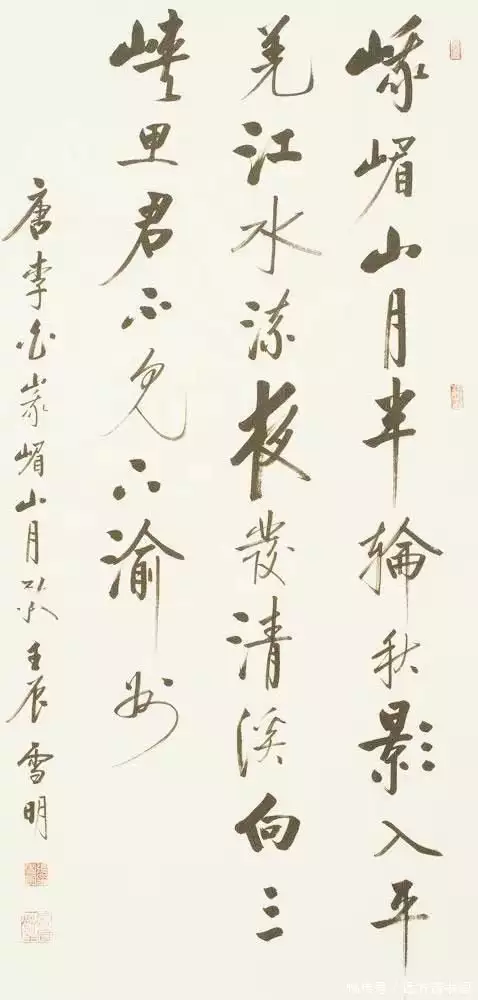 峨嵋山月半輪秋影入平
羌江水流夜發清溪向三
峡思君不見下渝州
唐李白峨嵋山月歌壬辰雪明